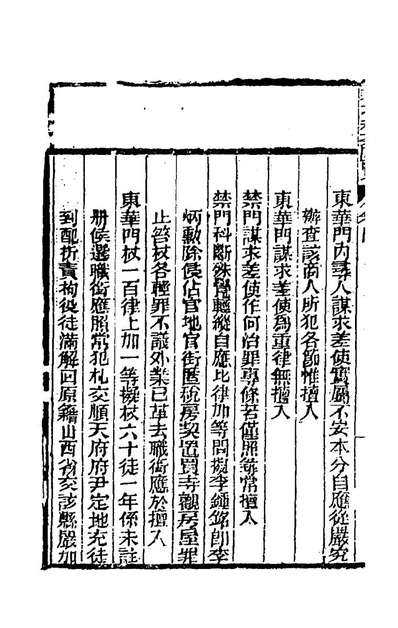 東華門內尋人謀求差使實屬不安本分自應從嚴究
辦查該商人所犯各節惟擅入
東華門謀求差使為重律無擅入
禁門謀求差使作何治罪專條若僅照尋常擅入
禁門科斷殊覺輕縱自應比律加等問擬李鍾銘即李
炳勳除侵佔官地官街匿稅房契置買寺觀房屋罪
止笞杖各輕罪不議外業已革去職銜應於擅入
東華門杖一百律上加一等擬杖六十徒一年係未註
冊候選職銜應照常犯札交順天府府尹定地充徒
到配折責拘役徒滿解回原籍山西省交該縣嚴加